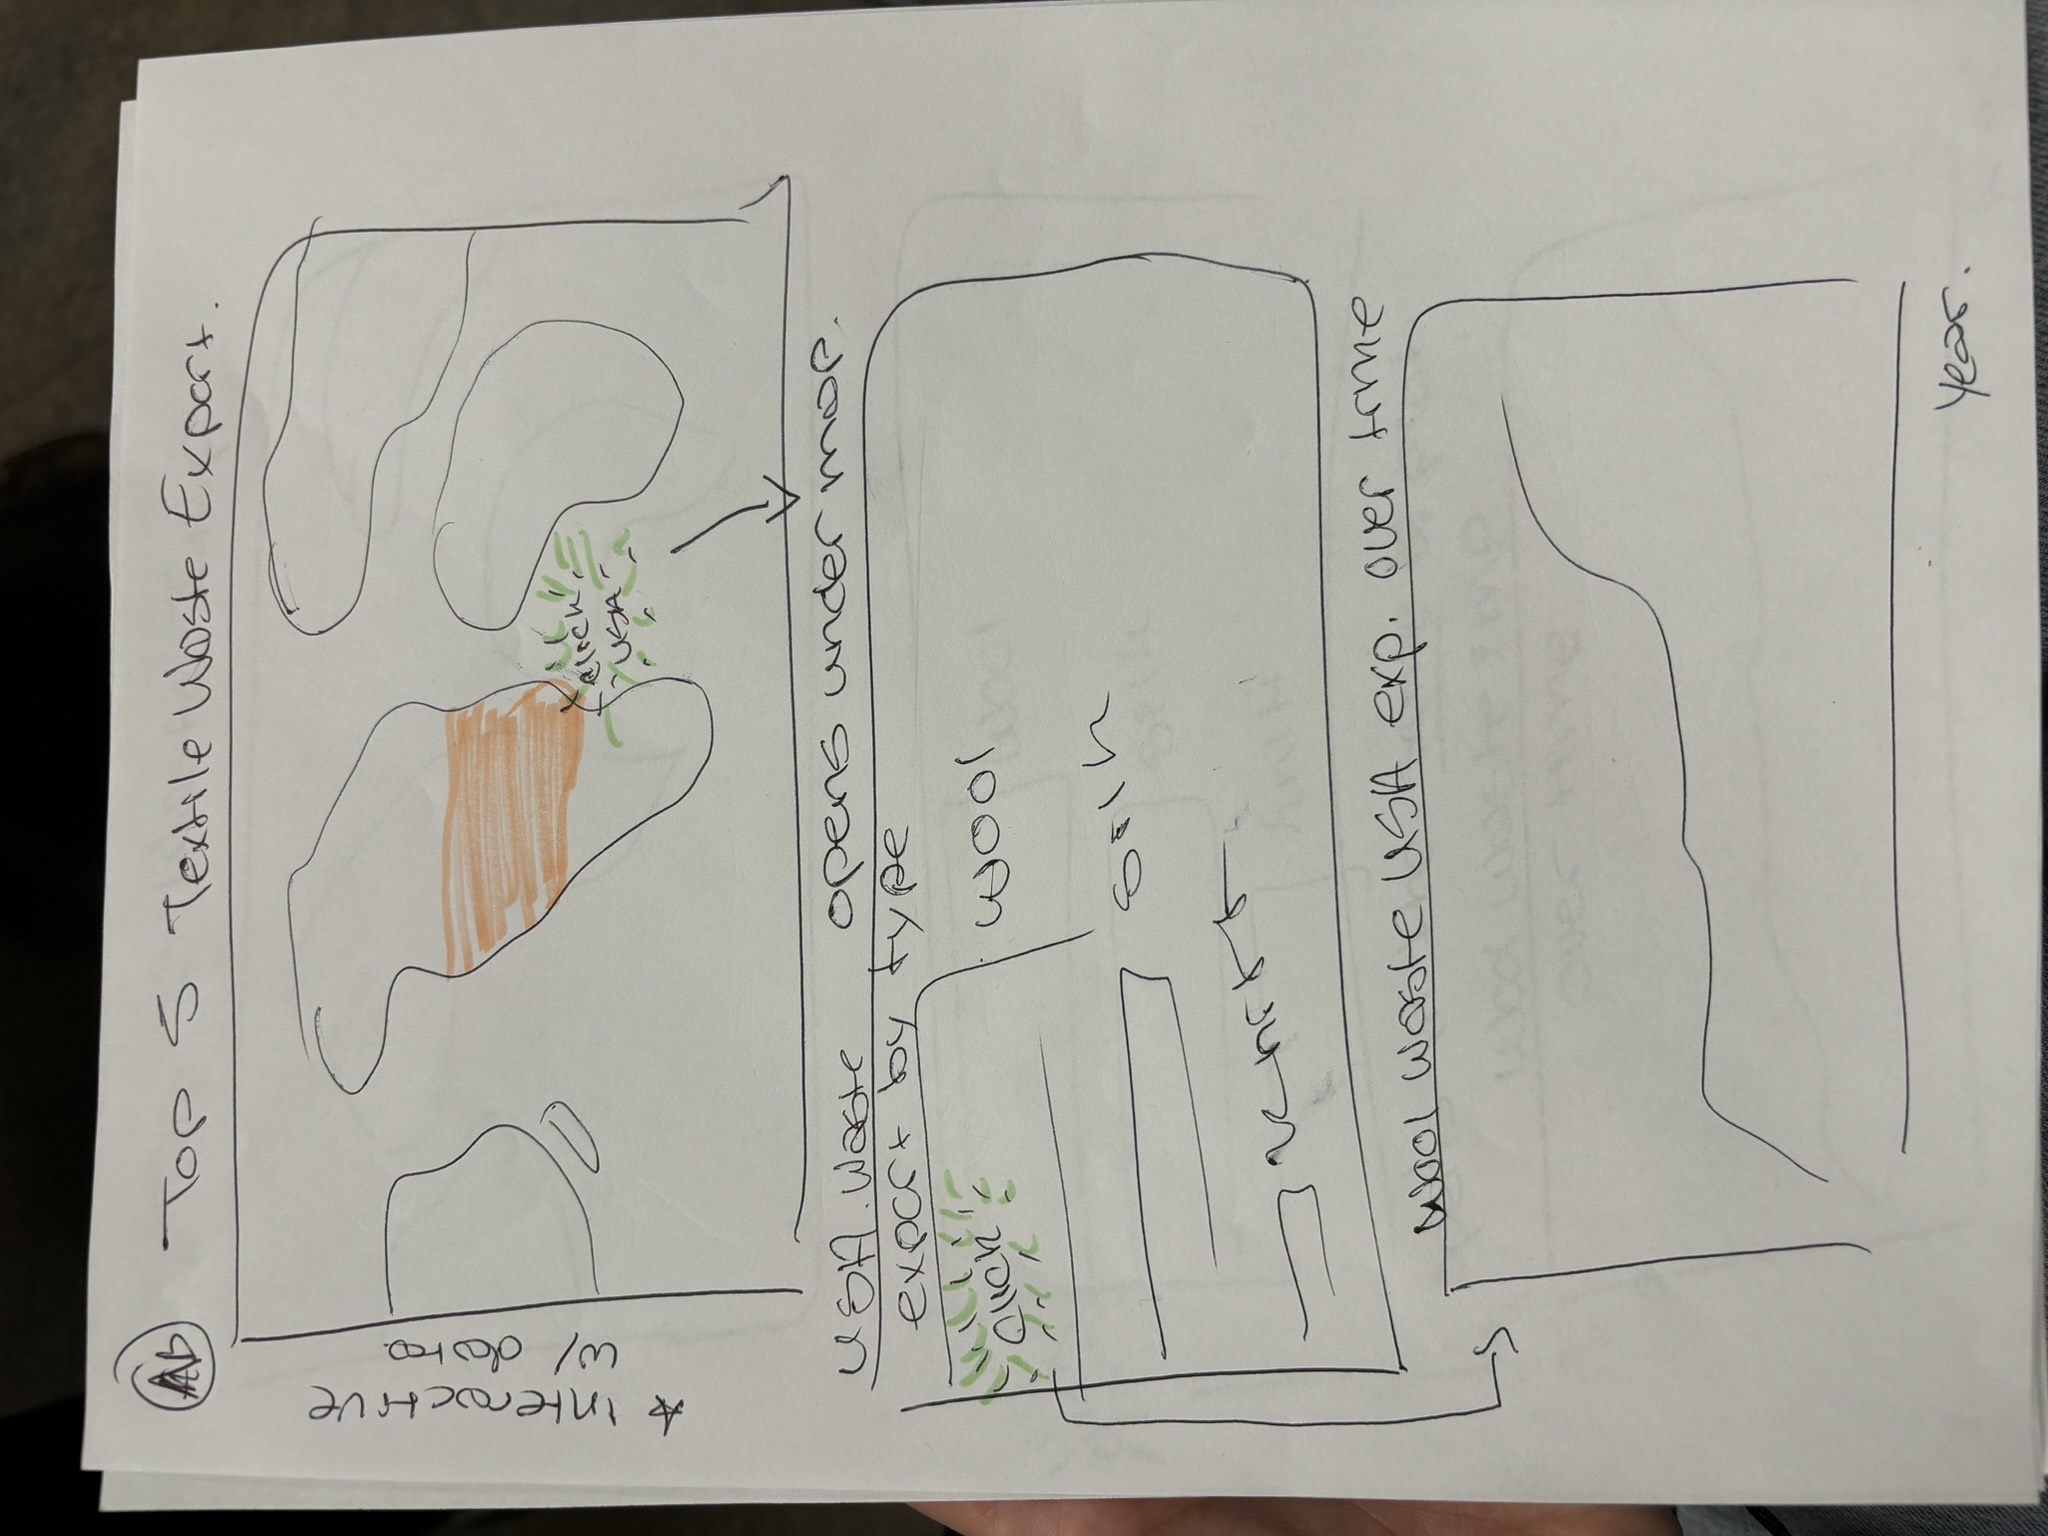 Top 5 Textile Waste Export.
* interactive
w/ data
click
USA
opens under map.
USA. Waste
export by type
click
wool
silk
wool waste USA exp. over time
year.